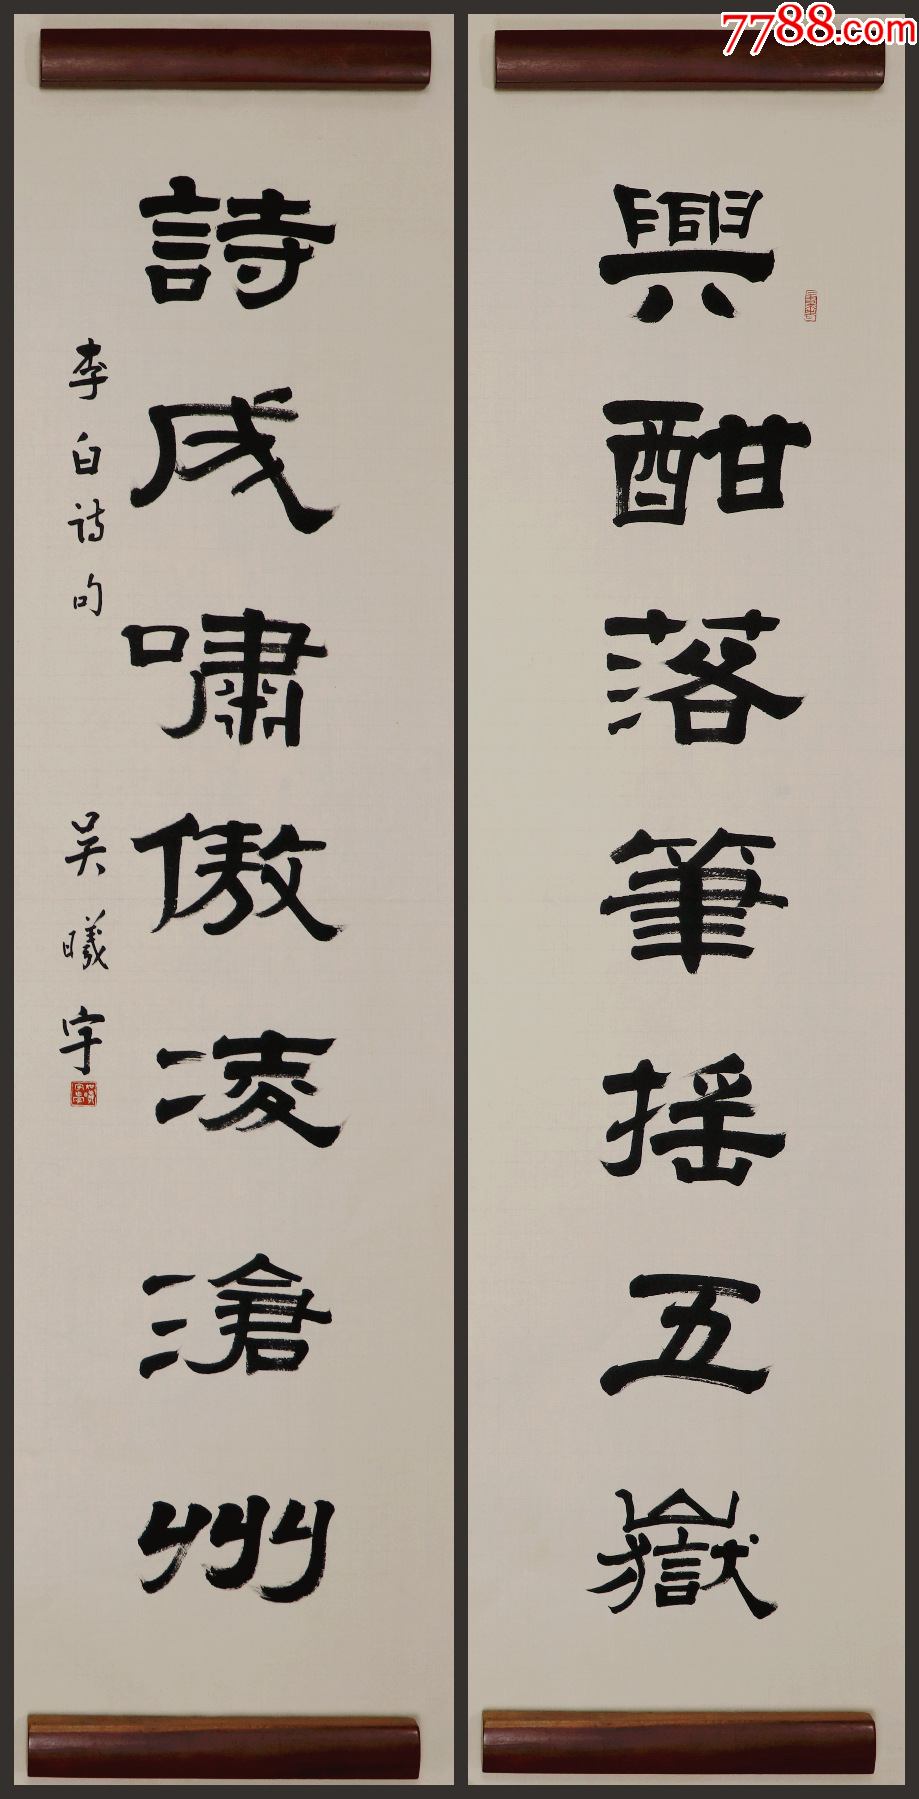 7788.com
興酣落筆摇五嶽
詩成嘯傲凌滄州
李白诗句
吴曦宇